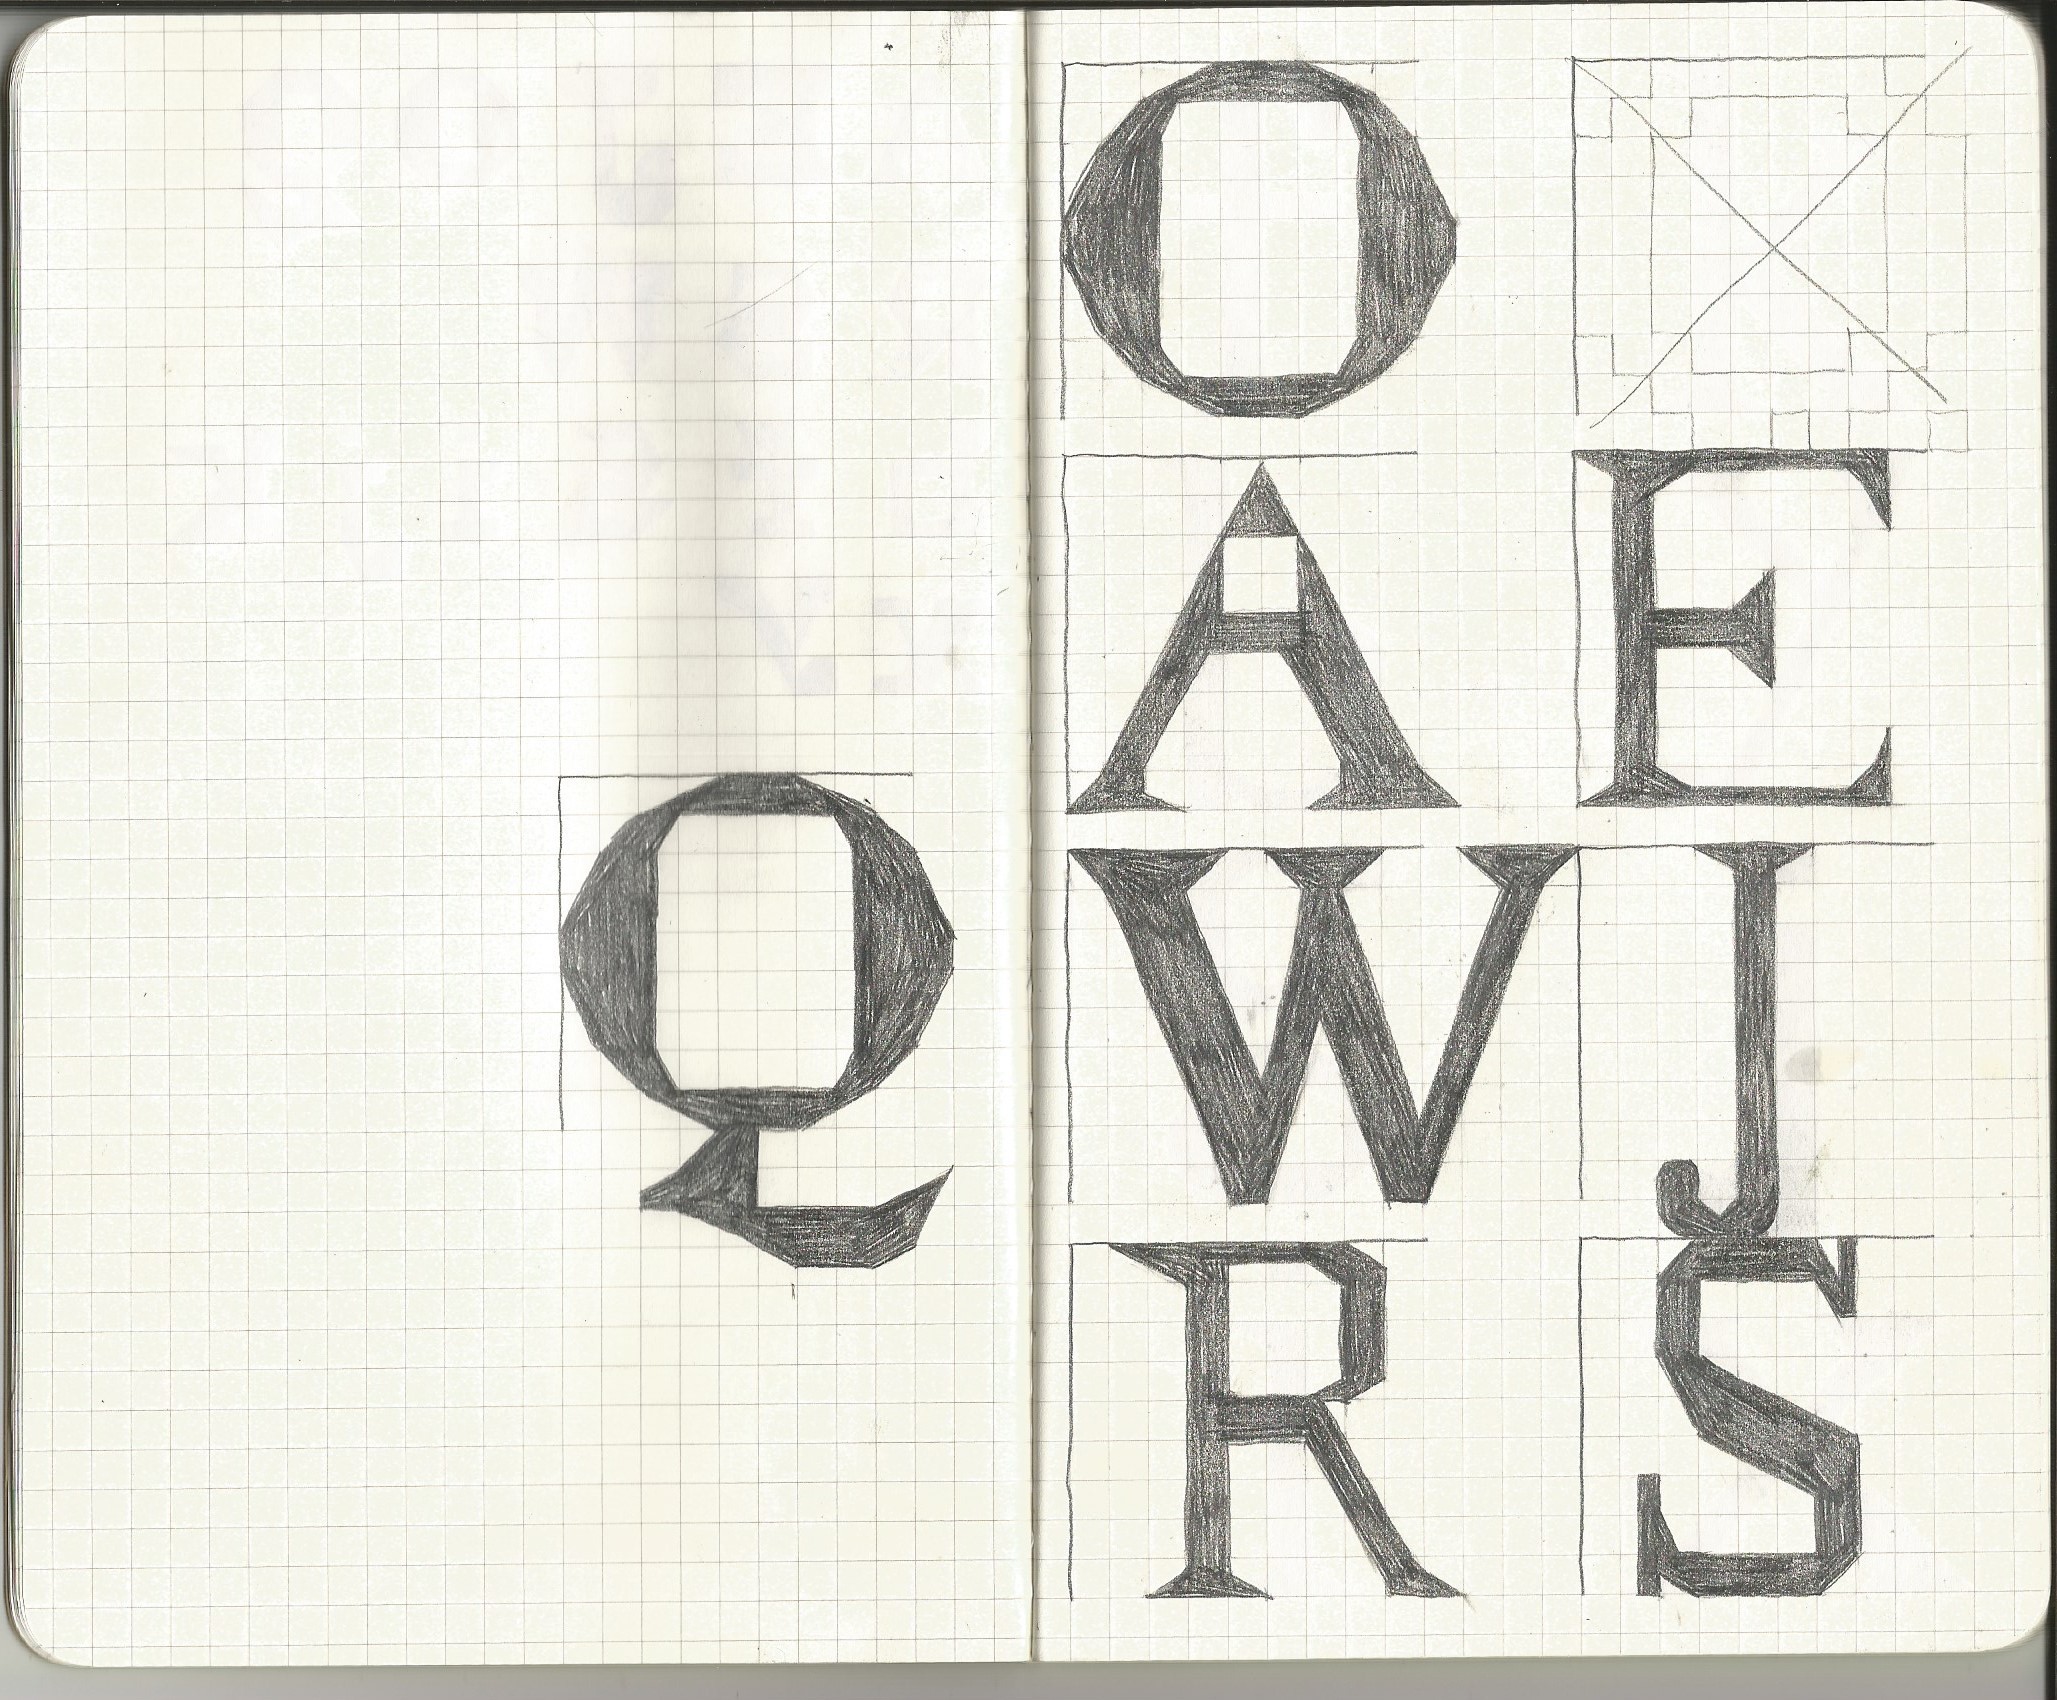 Q
O
A E
W J
R S